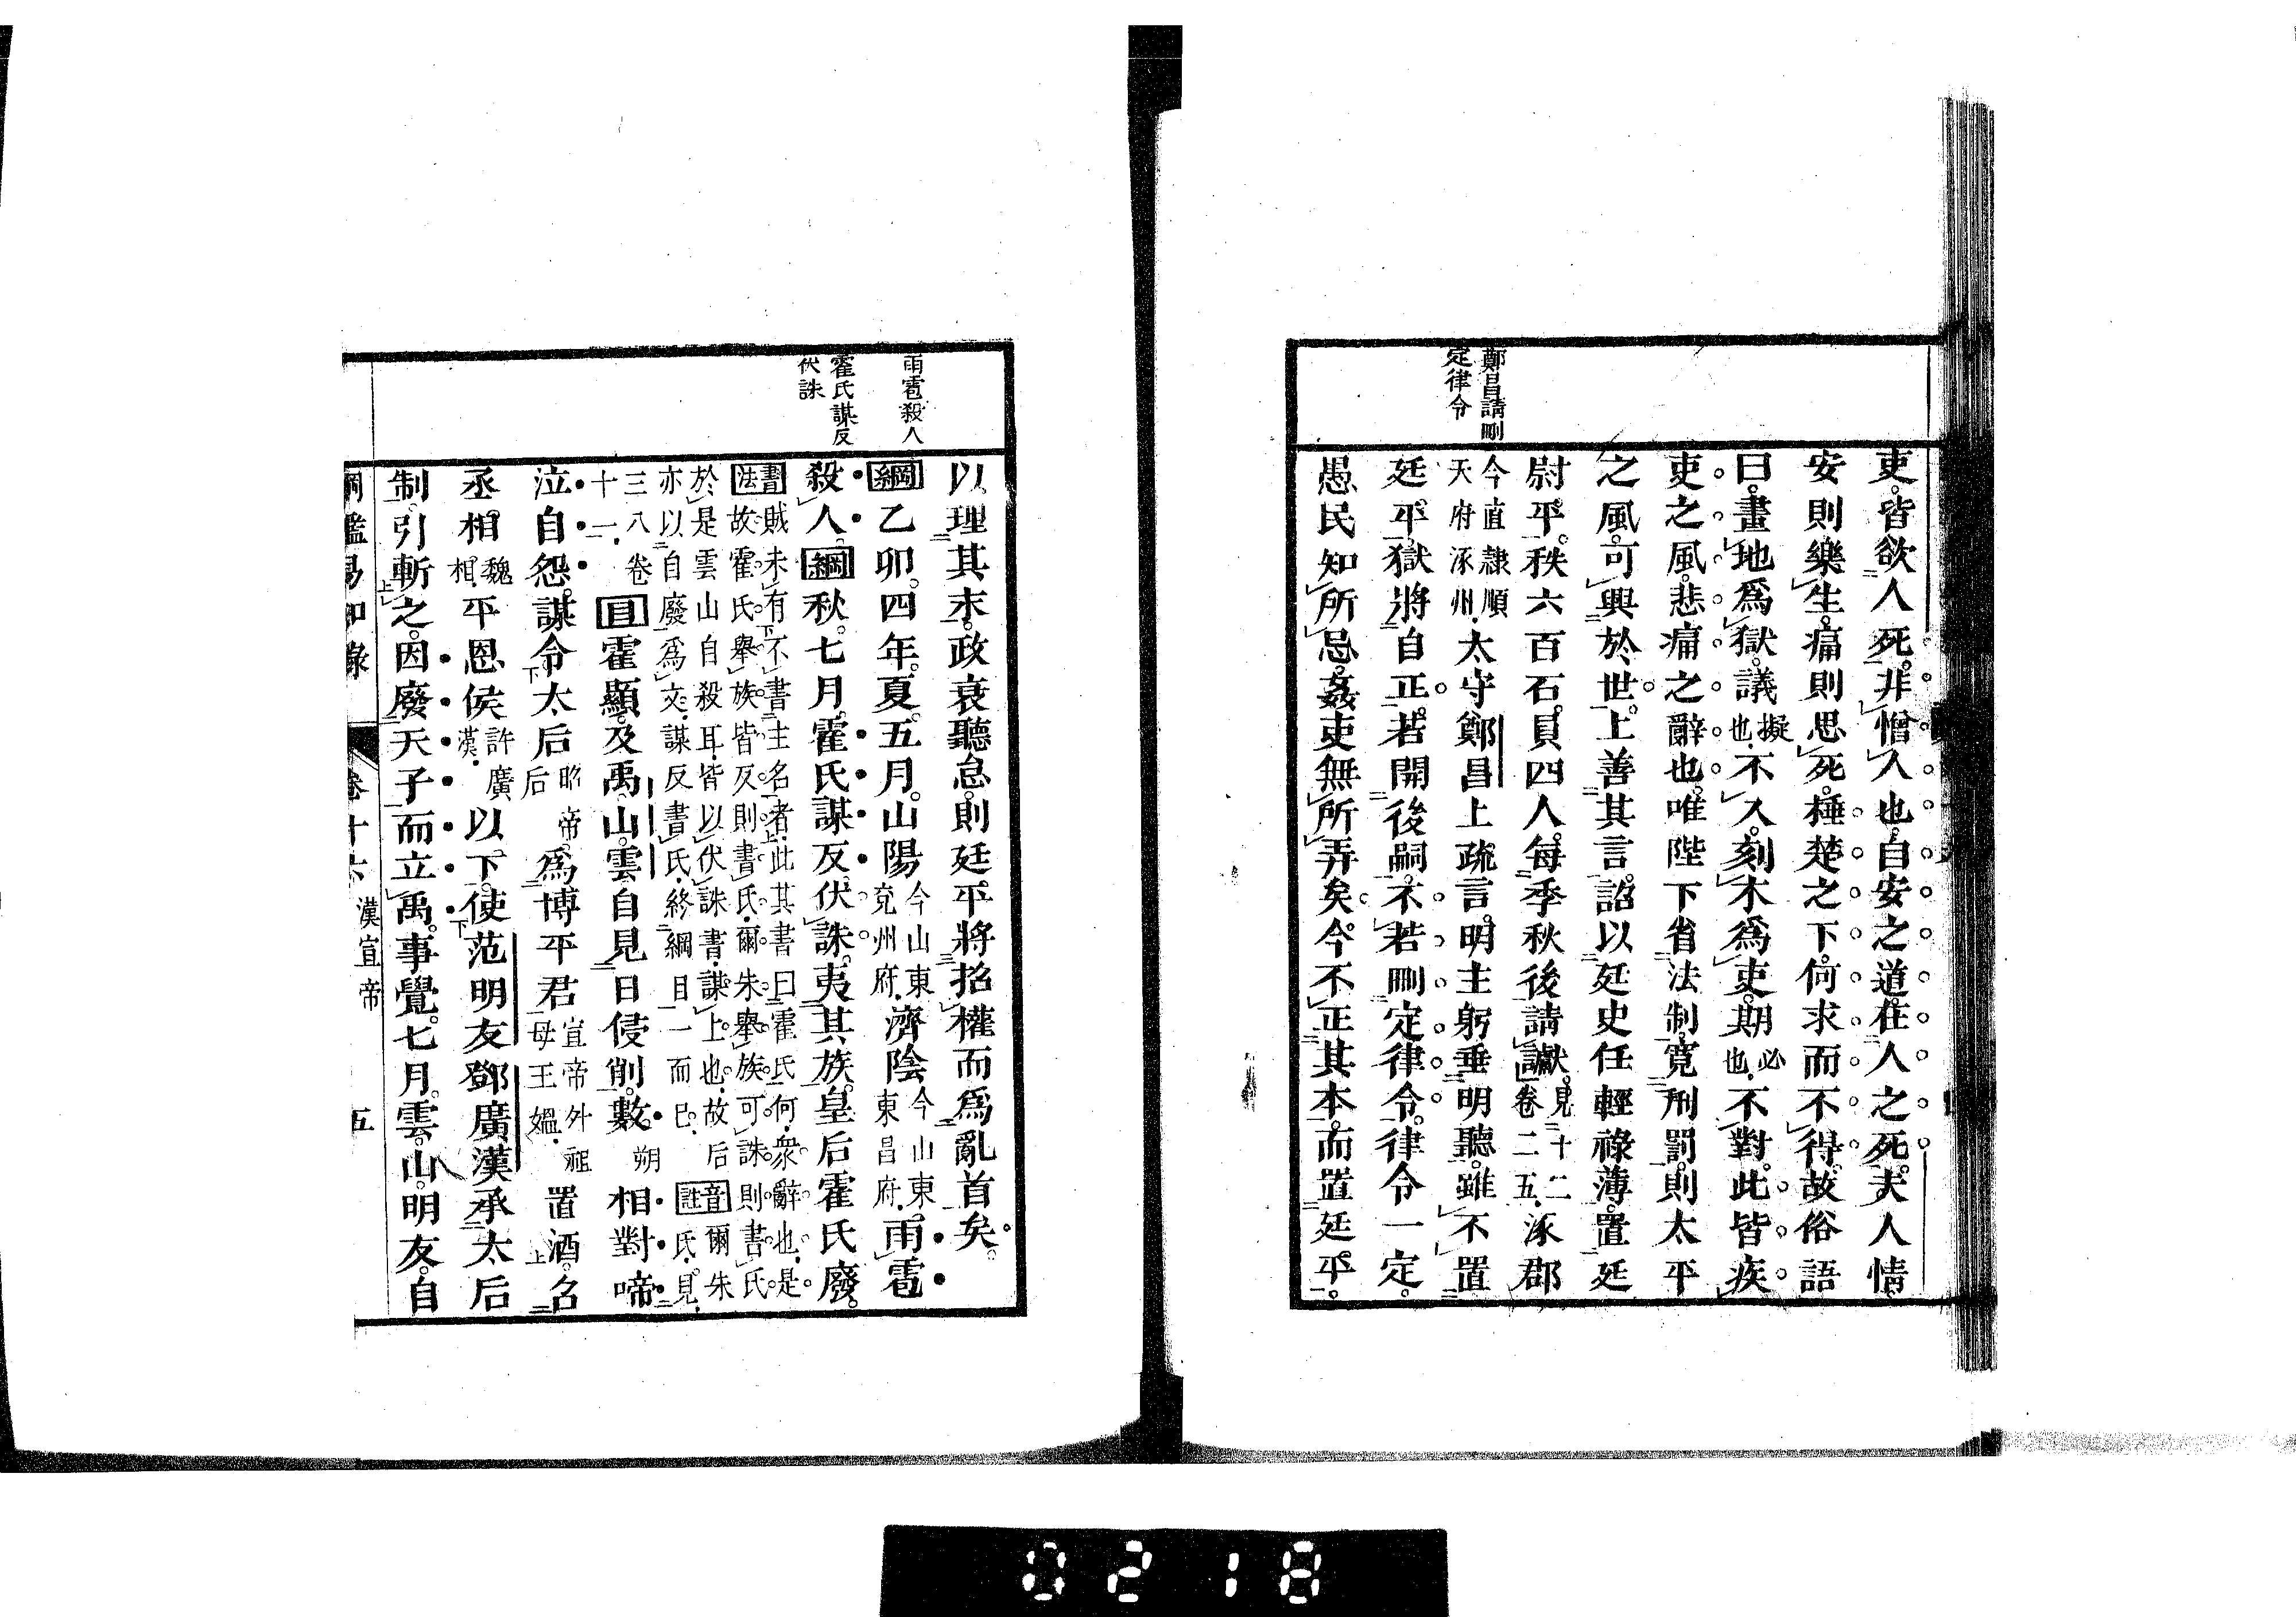 鄭昌請刪
定律令
吏。皆欲人死。非憎人也。自安之道。在人之死。夫人情。
安則樂生。痛則思死。棰楚之下。何求而不得。故俗語
曰。畫地爲獄。議擬也。不入。刻木爲吏。期必也。不對。此皆疾
吏之風。悲痛之辭也。唯陛下省法制。寬刑罰。則太平
之風。可興於世。上善其言。詔以廷史任輕祿薄。置廷
尉平。秩六百石。員四人。每季秋後請讞。見十二卷二五。涿郡
今直隸順天府涿州。太守鄭昌上疏言。明主躬垂明聽。雖不置
廷平。獄將自正。若開後嗣。不若刪定律令。律令一定。
愚民知所忌。姦吏無所弄矣。今不正其本。而置廷平。
雨雹殺人
霍氏謀反
伏誅
以理其末。政衰聽怠。則廷平將招權而爲亂首矣。
綱乙卯。四年。夏。五月。山陽今山東兗州府。濟陰今山東東昌府。雨雹
殺人。綱秋。七月。霍氏謀反。伏誅。夷其族。皇后霍氏廢。
書法賊未有不書主名者。此其書曰霍氏何。衆辭也。是故霍氏舉族皆反。則書氏。爾朱舉族可誅。則書氏
於是雲山自殺耳。皆以伏誅書。謀上也。故后亦以自廢爲文。謀反書氏。終綱目一而已。音註爾朱氏。見
三八卷十一。目霍顯。及禹。山。雲。自見日侵削。數朔相對啼
泣自怨。謀令太后昭帝后爲博平君宣帝外祖母王媼。置酒。召
丞相。魏相。平恩侯許廣漢。以下。使范明友鄧廣漢承太后
制。引斬之。因廢天子而立禹。事覺。七月。雲。山。明友。自
綱鑑易知錄 卷十六 漢宣帝 五
0218